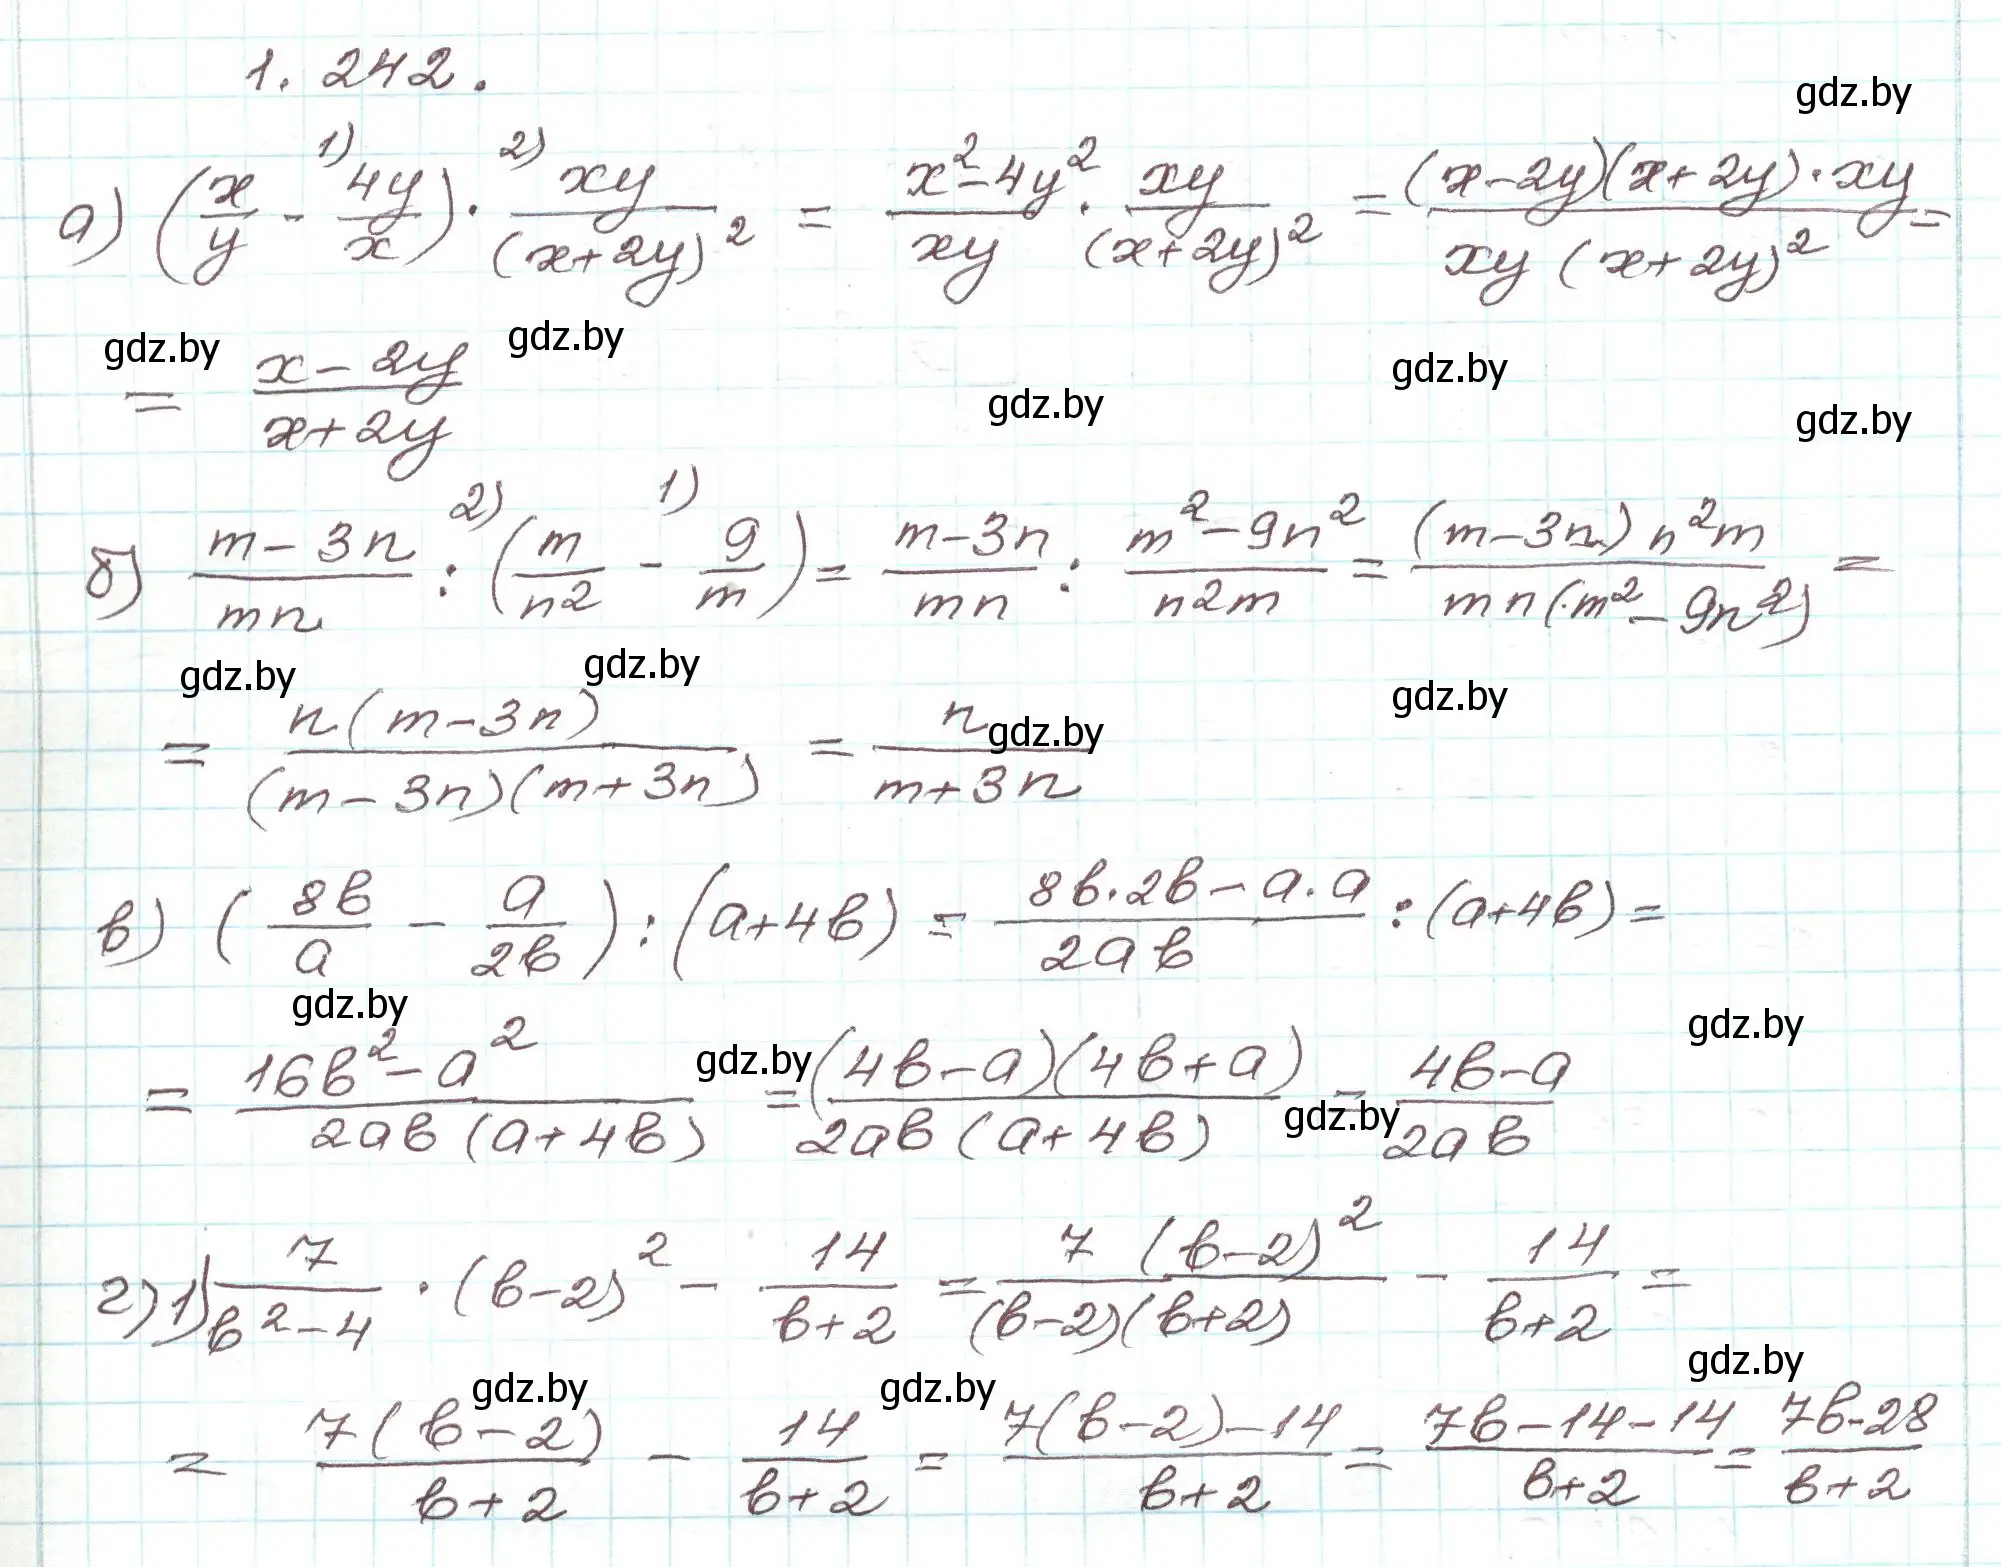 1.242.
gdz.by
а) (x/y - 1) 4y/x) · 2) xy/(x+2y)² = x²-4y²/xy · xy/(x+2y)² = (x-2y)(x+2y)·xy/xy(x+2y)² =
gdz.by gdz.by gdz.by gdz.by gdz.by
= x-2y/x+2y
б) m-3n/mn 2) : (m/n² - 1) 9/m) = m-3n/mn : m²-9n²/n²m = (m-3n)n²m/mn(m²-9n²) =
gdz.by gdz.by gdz.by gdz.by
= n(m-3n)/(m-3n)(m+3n) = n/m+3n
в) (8b/a - a/2b) : (a+4b) = 8b·2b-a·a/2ab : (a+4b) =
gdz.by gdz.by gdz.by gdz.by
= 16b²-a²/2ab(a+4b) = (4b-a)(4b+a)/2ab(a+4b) = 4b-a/2ab
г) 1) 7/b²-4 · (b-2)² - 14/b+2 = 7(b-2)²/(b-2)(b+2) - 14/b+2 =
gdz.by gdz.by gdz.by
= 7(b-2)/b+2 - 14/b+2 = 7(b-2)-14/b+2 = 7b-14-14/b+2 = 7b-28/b+2